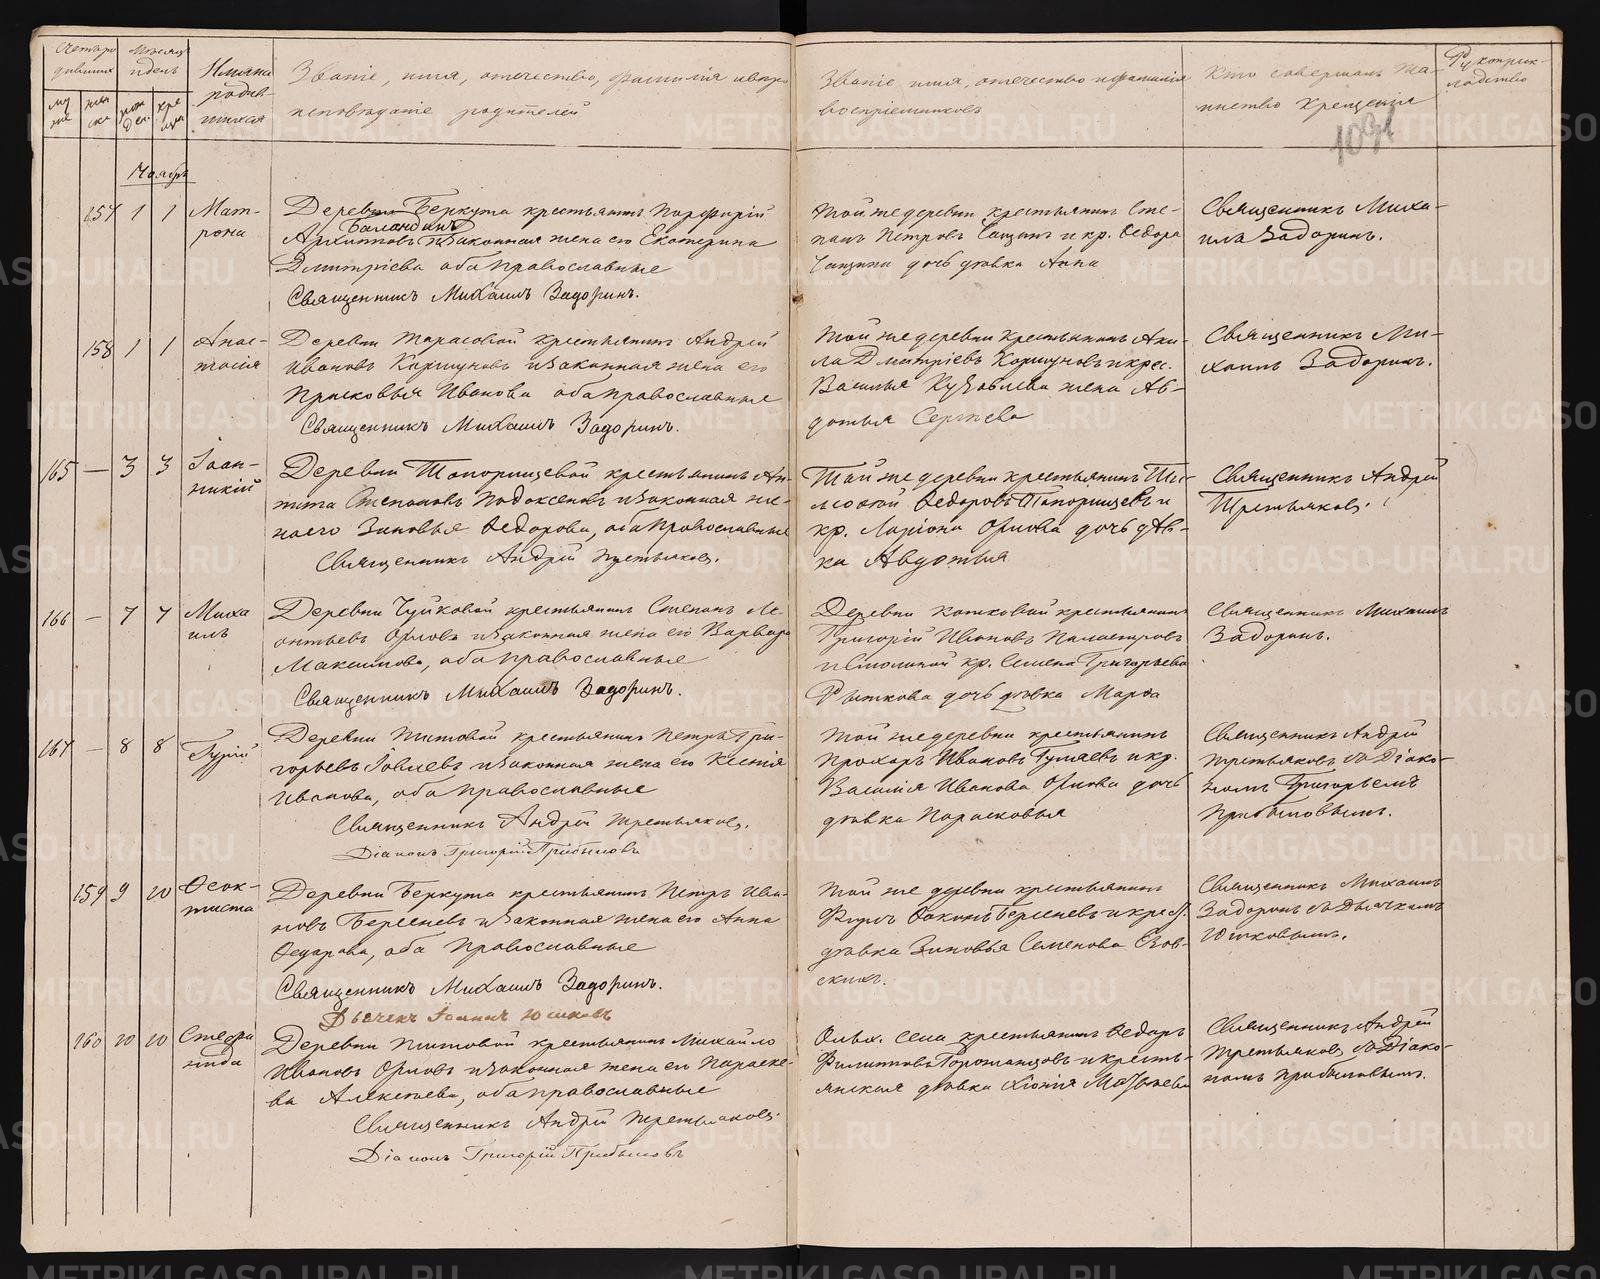 Счетъ родившихся
Мѣсяцъ и день
Имена родившихся
Званіе, имя, отчество, фамилія и вѣроисповѣданіе родителей
Званіе, имя, отчество и фамилія воспріемниковъ
Кто совершалъ таинство крещенія
Рукоприкладство
Ноябрь
157 1 1 Матрона
Деревни Беркута крестьянинъ Порфирій
Архиповъ Баландинъ и законная жена его Екатерина
Дмитріева оба православные
Священникъ Михаилъ Задоринъ.
Той же деревни крестьянинъ Сте-
панъ Петровъ и кр. Ѳедора
дочь дѣвка Анна
Священникъ Миха-
илъ Задоринъ.
158 1 1 Анас-
тасія
Деревни Тарасовой крестьянинъ Андрей
Ивановъ Коршуновъ и законная жена его
Прасковья Иванова оба православные
Священникъ Михаилъ Задоринъ.
Той же деревни крестьянинъ Аки-
ла Дмитріевъ Коршуновъ и крес.
Василья жена Ав-
дотья Сергѣева
Священникъ Ми-
хаилъ Задоринъ.
165 — 3 3 Іоан-
никій
Деревни Топорищевой крестьянинъ Ан-
типа Степановъ и законная же-
на его Зиновья Ѳедорова, оба православные
Священникъ Андрей Третьяковъ.
Той же деревни крестьянинъ Ти-
моѳей Ѳедоровъ Топорищевъ и
кр. Ларіона Орлова дочь дѣв-
ка Авдотья
Священникъ Андрей
Третьяковъ.
166 — 7 7 Миха
илъ
Деревни Чуйковой крестьянинъ Степанъ Ле-
онтьевъ Орловъ и законная жена его Варвара
Максимова, оба православные
Священникъ Михаилъ Задоринъ.
Деревни крестьянинъ
Григорій Ивановъ
и Смолиной кр. Семена Григорьева
Рыжкова дочь дѣвка Марѳа
Священникъ Михаилъ
Задоринъ.
167 — 8 8 Гурій
Деревни Титовой крестьянинъ Петръ Гри-
горьевъ Іовлевъ и законная жена его Ксенія
Иванова, оба православные
Священникъ Андрей Третьяковъ.
Діаконъ Григорій Прибыловъ
Той же деревни крестьянинъ
Прохоръ Ивановъ и кр.
Василія Иванова Орлова дочь
дѣвка Парасковья
Священникъ Андрей
Третьяковъ съ Діако-
номъ Григорьемъ
Прибыловымъ.
159 9 10 Ѳеок-
тиста
Деревни Беркута крестьянинъ Петръ Ива-
новъ Берсеневъ и законная жена его Анна
Ѳедорова, оба православные
Священникъ Михаилъ Задоринъ.
Дьячекъ Іоаннъ Юшковъ
Той же деревни крестьянинъ
Фоминъ Берсеневъ и крест.
дѣвка Зиновья Семенова
Священникъ Михаилъ
Задоринъ съ Дьячкомъ
Юшковымъ.
160 10 10 Стефа
нида
Деревни Титовой крестьянинъ Михайло
Ивановъ Орловъ и законная жена его Параске-
ва Алексѣева, оба православные
Священникъ Андрей Третьяковъ.
Діаконъ Григорій Прибыловъ
Ольх. села крестьянинъ Ѳедоръ
Филипповъ и кресть-
янская дѣвка Матвѣева
Священникъ Андрей
Третьяковъ съ Діако-
номъ Прибыловымъ.
METRIKI.GASO-URAL.RU